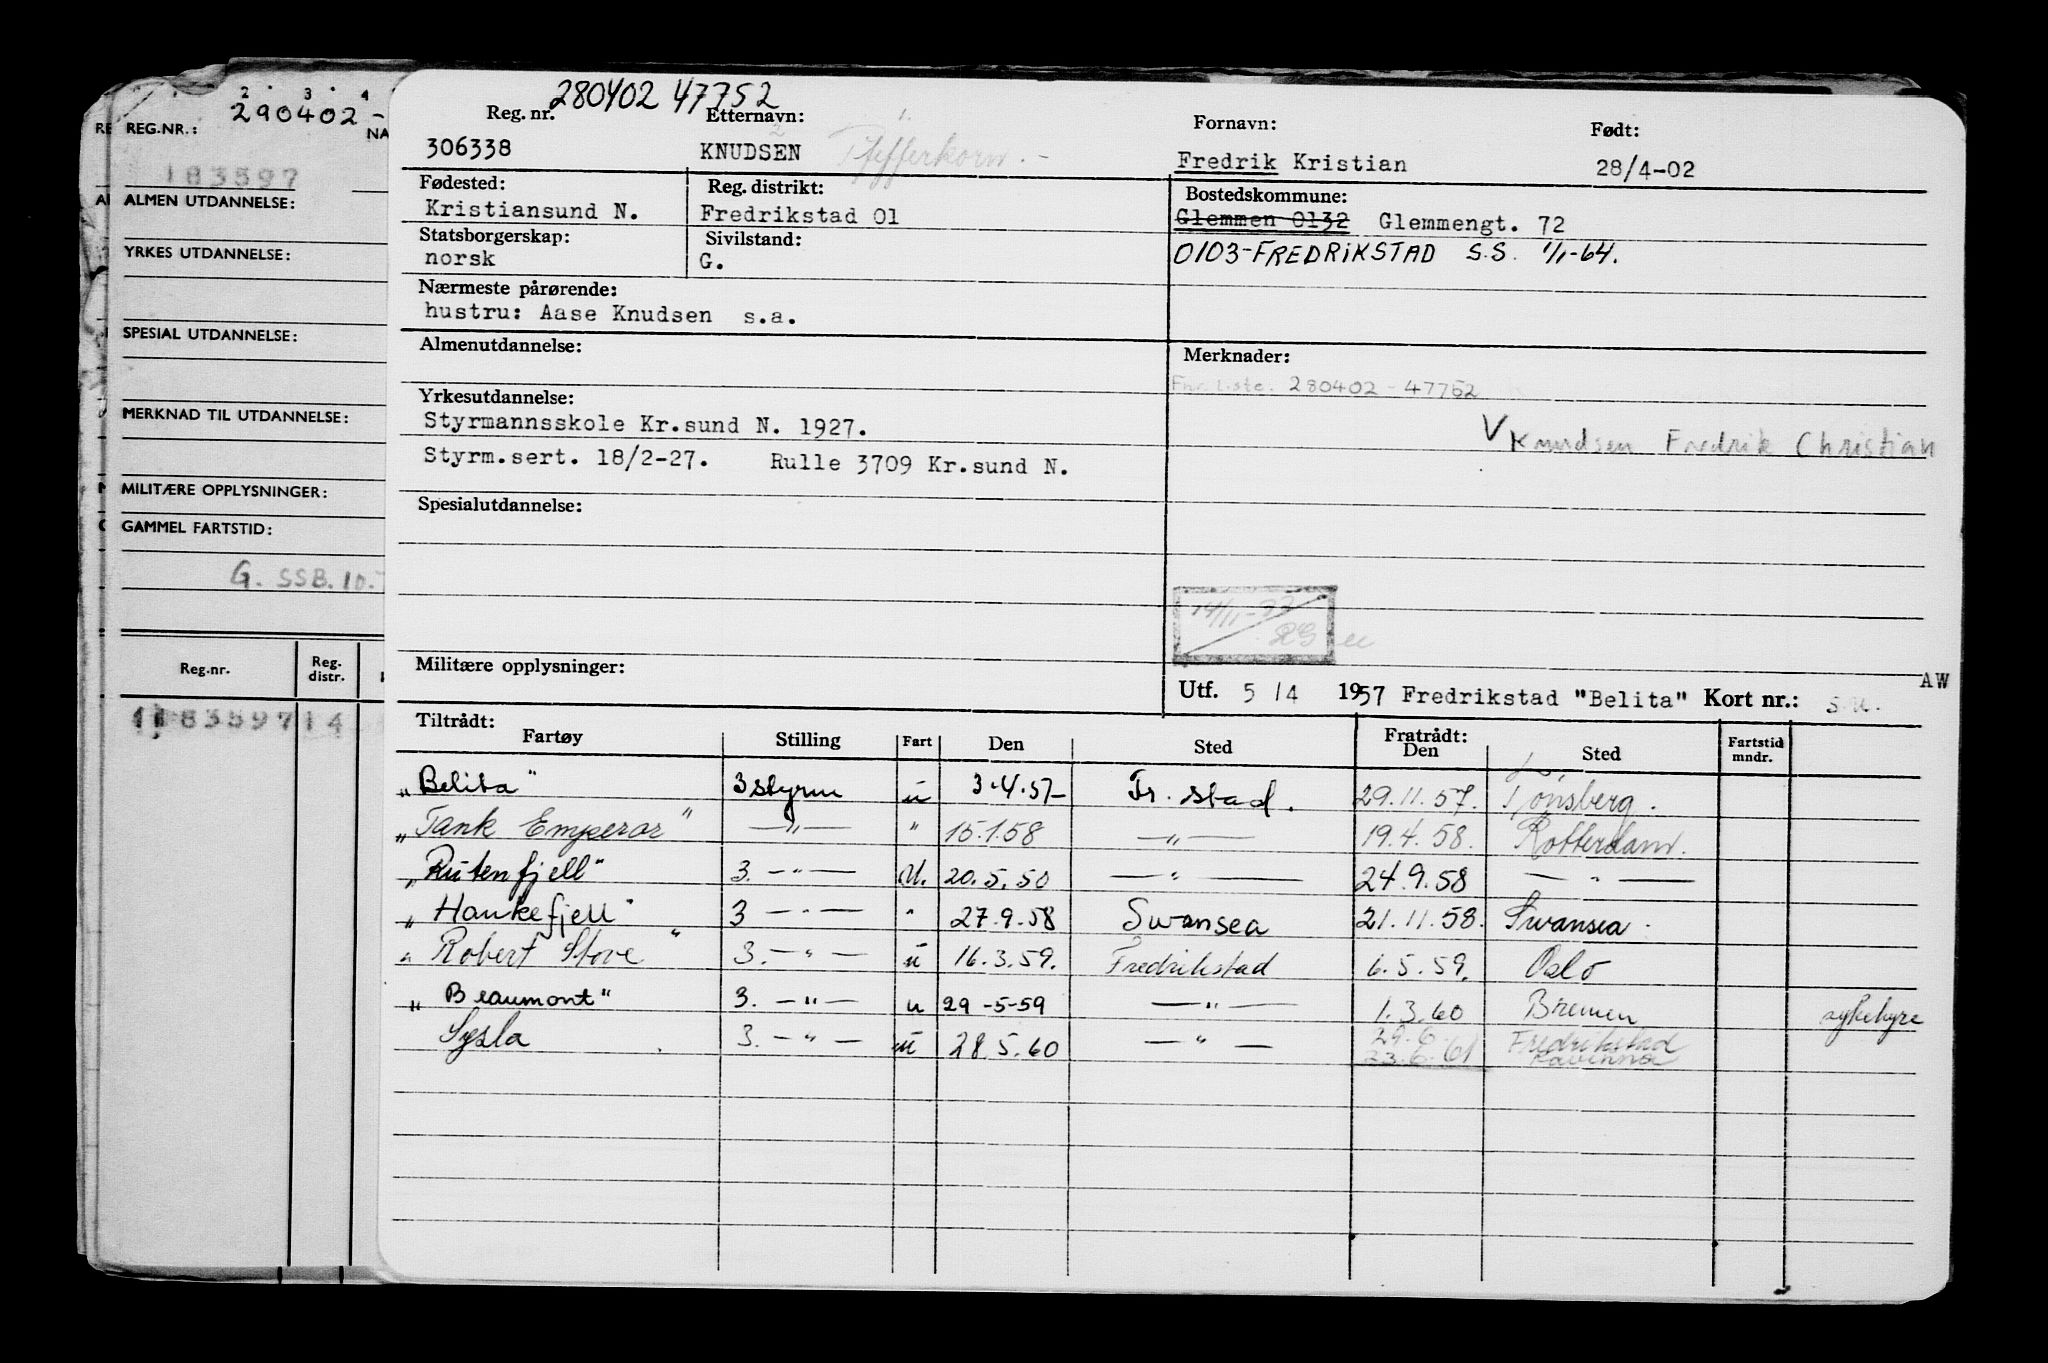 2 3 4
290402-
REG.NR.:
NA
183597
ALMEN UTDANNELSE:
YRKES UTDANNELSE:
SPESIAL UTDANNELSE:
MERKNAD TIL UTDANNELSE:
MILITÆRE OPPLYSNINGER:
GAMMEL FARTSTID:
G. SSB. 10.
Reg.nr. Reg. distr.
183597 14
280402 47752
Reg. nr. Etternavn: Fornavn: Født:
306338 KNUDSEN Pfefferkorn.- Fredrik Kristian 28/4-02
Fødested: Reg. distrikt: Bostedskommune:
Kristiansund N. Fredrikstad 01 Glemmen 0132 Glemmengt. 72
Statsborgerskap: Sivilstand:
norsk G. 0103-FREDRIKSTAD S.S. 1/1-64.
Nærmeste pårørende:
hustru: Aase Knudsen s.a.
Almenutdannelse: Merknader:
Fnr. liste. 280402-47752
Yrkesutdannelse:
Styrmannsskole Kr.sund N. 1927.
V Knudsen Fredrik Christian
Styrm.sert. 18/2-27. Rulle 3709 Kr.sund N.
Spesialutdannelse:
Militære opplysninger:
Utf. 5/4 1957 Fredrikstad "Belita" Kort nr.: AW
Tiltrådt: Fratrådt:
Fartøy Stilling Fart Den Sted Den Sted Fartstid mndr.
"Belita" 3 styrm u 3.4.57- Fr.stad. 29.11.57. Tønsberg.
"Tank Emperor" —"— " 15.1.58 —"— 19.4.58. Rotterdam.
"Rutenfjell" 3. —"— U. 20.5.50 —"— 24.9.58 —"—
"Haukefjell" 3 —"— " 27.9.58 Swansea 21.11.58. Swansea.
"Robert Stove" 3. —"— u 16.3.59. Fredrikstad 6.5.59. Oslo
"Beaumont" 3. —"— u 29-5-59 —"— 1.3.60 Bremen sykehyre
Sysla 3. —"— u 28.5.60 —"— 29.6. Fredrikstad
23.6.61 Ravenna